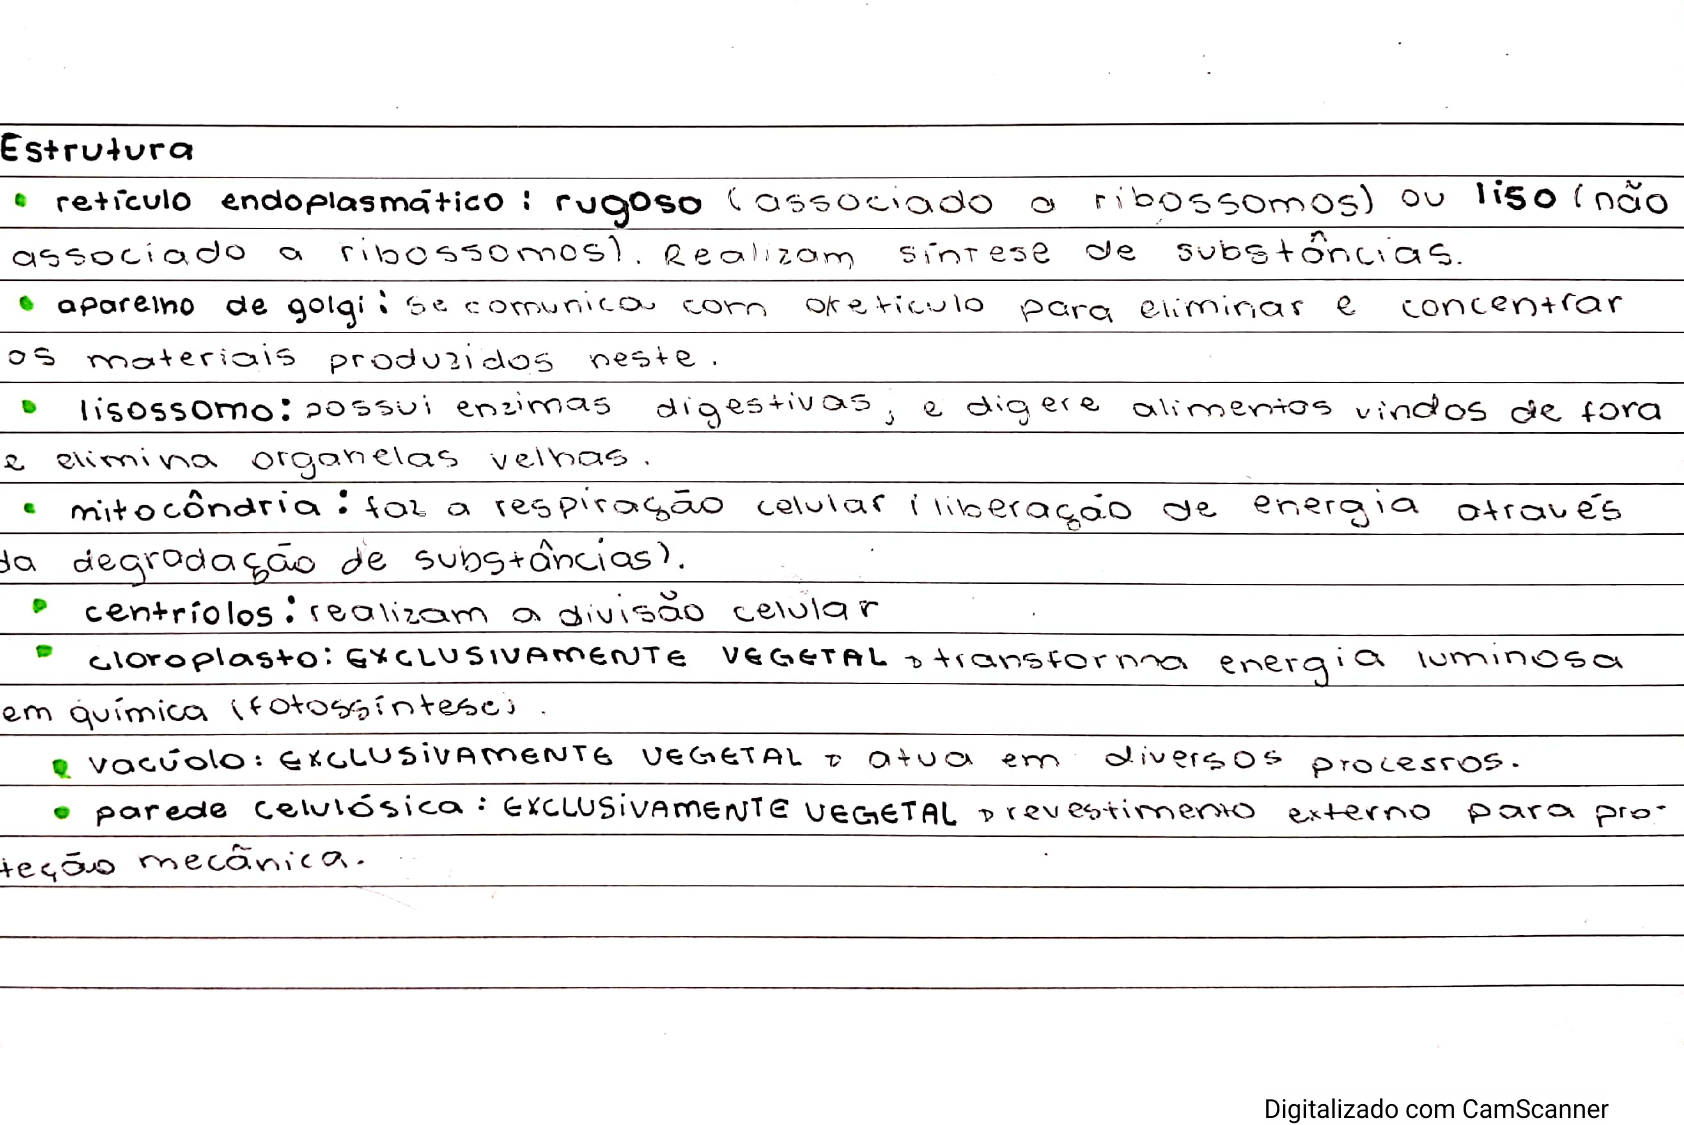 Estrutura
• retículo endoplasmático: rugoso (associado a ribossomos) ou liso (não
associado a ribossomos). Realizam síntese de substâncias.
• aparelho de golgi: se comunica com o retículo para eliminar e concentrar
os materiais produzidos neste.
• lisossomo: possui enzimas digestivas, e digere alimentos vindos de fora
e elimina organelas velhas.
• mitocôndria: faz a respiração celular (liberação de energia através
da degradação de substâncias).
• centríolos: realizam a divisão celular
• cloroplasto: EXCLUSIVAMENTE VEGETAL → transforma energia luminosa
em química (fotossíntese).
• vacúolo: EXCLUSIVAMENTE VEGETAL → atua em diversos processos.
• parede celulósica: EXCLUSIVAMENTE VEGETAL → revestimento externo para pro-
teção mecânica.
Digitalizado com CamScanner